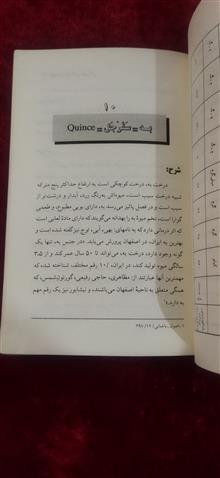 ۱۰
به = سفرجل = Quince
شرح:
درخت به، درخت کوچکی است به ارتفاع حداکثر پنج متر که
شبیه درخت سیب است. میوه‌اش به‌رنگ زرد، آبدار و درشت‌تر از
سیب است و در فصل پائیز می‌رسد. به، دارای بویی مطبوع، و طعمی
گوارا است، تخم میوهٔ به را بهدانه می‌گویند که دارای مادهٔ لعابی است
که اثر درمانی دارد که به نامهای، بهی، آبی، توج نیز گفته شده است و
بهترین به ایران، در اصفهان پرورش می‌یابد. «در جنس به، تنها یک
گونه وجود دارد، درخت به، می‌تواند تا ۵۰ سال عمر کند و از ۳،۵
سالگی میوه تولید کند، در ایران، ۱۰ رقم مختلف شناخته شده که
مهمترین آنها عبارتند از: مظاهری، حاجی رفیعی، گورتون، شمس، که
همگی متعلق به ناحیهٔ اصفهان می‌باشند، و نیشابور نیز یک رقم مهم
به دارد.»